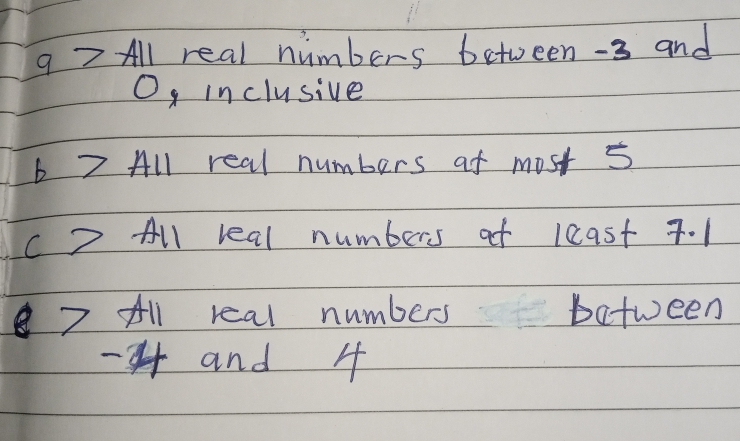 a > All real numbers between -3 and
0, inclusive
b > All real numbers at most 5
c > All real numbers at least 7.1
e > All real numbers between
-4 and 4